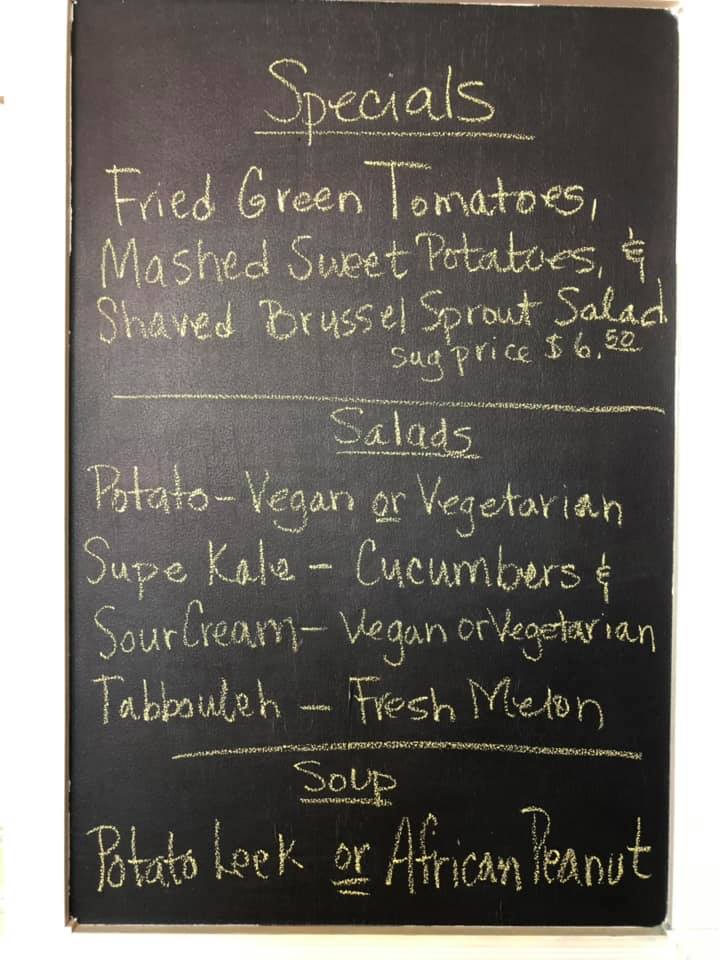 Specials
Fried Green Tomatoes,
Mashed Sweet Potatoes, &
Shaved Brussel Sprout Salad
sug price $6.50
Salads
Potato - Vegan or Vegetarian
Supe Kale - Cucumbers &
Sour Cream - Vegan or Vegetarian
Tabbouleh - Fresh Melon
Soup
Potato Leek or African Peanut